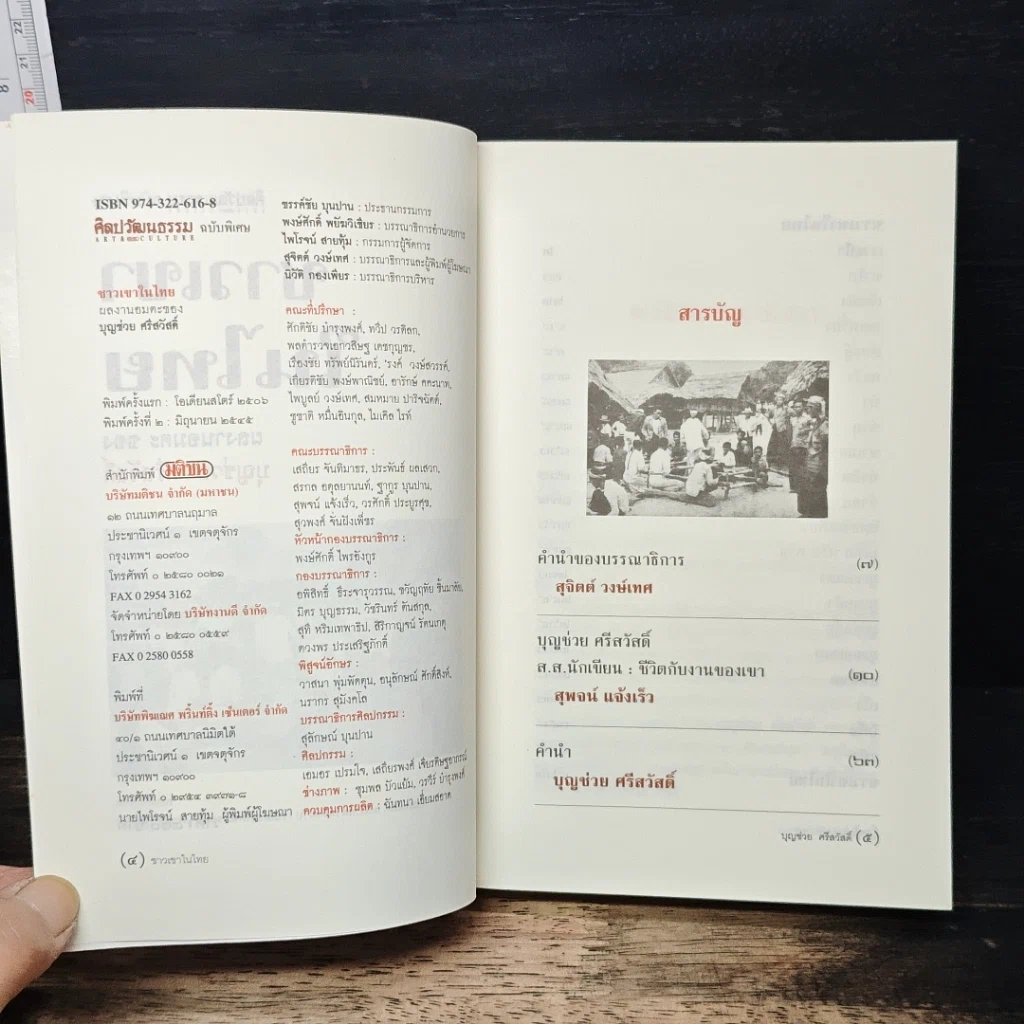 ISBN 974-322-616-8
ศิลปวัฒนธรรม ฉบับพิเศษ
ART & CULTURE
ชาวเขาในไทย
ผลงานอมตะของ
บุญช่วย ศรีสวัสดิ์
พิมพ์ครั้งแรก : โอเดียนสโตร์ ๒๕๐๖
พิมพ์ครั้งที่ ๒ : มิถุนายน ๒๕๔๕
สำนักพิมพ์ มติชน
บริษัทมติชน จำกัด (มหาชน)
๑๒ ถนนเทศบาลนฤมาล
ประชานิเวศน์ ๑ เขตจตุจักร
กรุงเทพฯ ๑๐๙๐๐
โทรศัพท์ ๐ ๒๕๘๐ ๐๐๒๑
FAX 0 2954 3162
จัดจำหน่ายโดย บริษัทงานดี จำกัด
โทรศัพท์ ๐ ๒๕๘๐ ๐๕๕๙
FAX 0 2580 0558
พิมพ์ที่
บริษัทพิฆเณศ พริ้นท์ติ้ง เซ็นเตอร์ จำกัด
๔๐/๑ ถนนเทศบาลนิมิตใต้
ประชานิเวศน์ ๑ เขตจตุจักร
กรุงเทพฯ ๑๐๙๐๐
โทรศัพท์ ๐ ๒๙๕๔ ๑๙๗๑-๘
นายไพโรจน์ สายทุ้ม ผู้พิมพ์ผู้โฆษณา
ขรรค์ชัย บุนปาน : ประธานกรรมการ
พงษ์ศักดิ์ พยัฆวิเชียร : บรรณาธิการอำนวยการ
ไพโรจน์ สายทุ้ม : กรรมการผู้จัดการ
สุจิตต์ วงษ์เทศ : บรรณาธิการและผู้พิมพ์ผู้โฆษณา
นิวัติ กองเพียร : บรรณาธิการบริหาร
คณะที่ปรึกษา :
ศักดิชัย บำรุงพงศ์, ทวีป วรดิลก,
พลตำรวจเอกวสิษฐ เดชกุญชร,
เรืองชัย ทรัพย์นิรันดร์, 'รงค์ วงษ์สวรรค์,
เกียรติชัย พงษ์พาณิชย์, อารักษ์ คคะนาท,
ไพบูลย์ วงษ์เทศ, สมหมาย ปาริจฉัตต์,
ชูชาติ หมื่นอินกุล, ไมเคิล ไรท์
คณะบรรณาธิการ :
เสถียร จันทิมาธร, ประพันธ์ ผลเสวก,
สรกล อดุลยานนท์, ฐากูร บุนปาน,
สุพจน์ แจ้งเร็ว, วรศักดิ์ ประยูรศุข,
สุวพงศ์ จั่นฝังเพ็ชร
หัวหน้ากองบรรณาธิการ :
พงษ์ศักดิ์ ไพรอังกูร
กองบรรณาธิการ :
อพิสิทธิ์ ธีระจารุวรรณ, ขวัญฤทัย ชื้นมาลัย,
มิตร บุญธรรม, วัชรินทร์ ตันสกุล,
สุที หริมเทพาธิป, สิริกาญจน์ รัตนเกตุ
ดวงพร ประเสริฐภักดิ์
พิสูจน์อักษร :
วาสนา พุ่มพัดตุน, อนุลักษณ์ ศักดิ์สิงห์,
นรากร สุมังคโล
บรรณาธิการศิลปกรรม :
สุลักษณ์ บุนปาน
ศิลปกรรม :
เอมอร เปรมใจ, เสถียรพงศ์
ช่างภาพ : ชุมพล บัวแย้ม, วรวีร์ บำรุงพงศ์
ควบคุมการผลิต : ฉันทนา เอี่ยมสอาด
(๔) ชาวเขาในไทย
สารบัญ
คำนำของบรรณาธิการ (๗)
สุจิตต์ วงษ์เทศ
บุญช่วย ศรีสวัสดิ์
ส.ส.นักเขียน : ชีวิตกับงานของเขา (๑๐)
สุพจน์ แจ้งเร็ว
คำนำ (๖๓)
บุญช่วย ศรีสวัสดิ์
บุญช่วย ศรีสวัสดิ์ (๕)